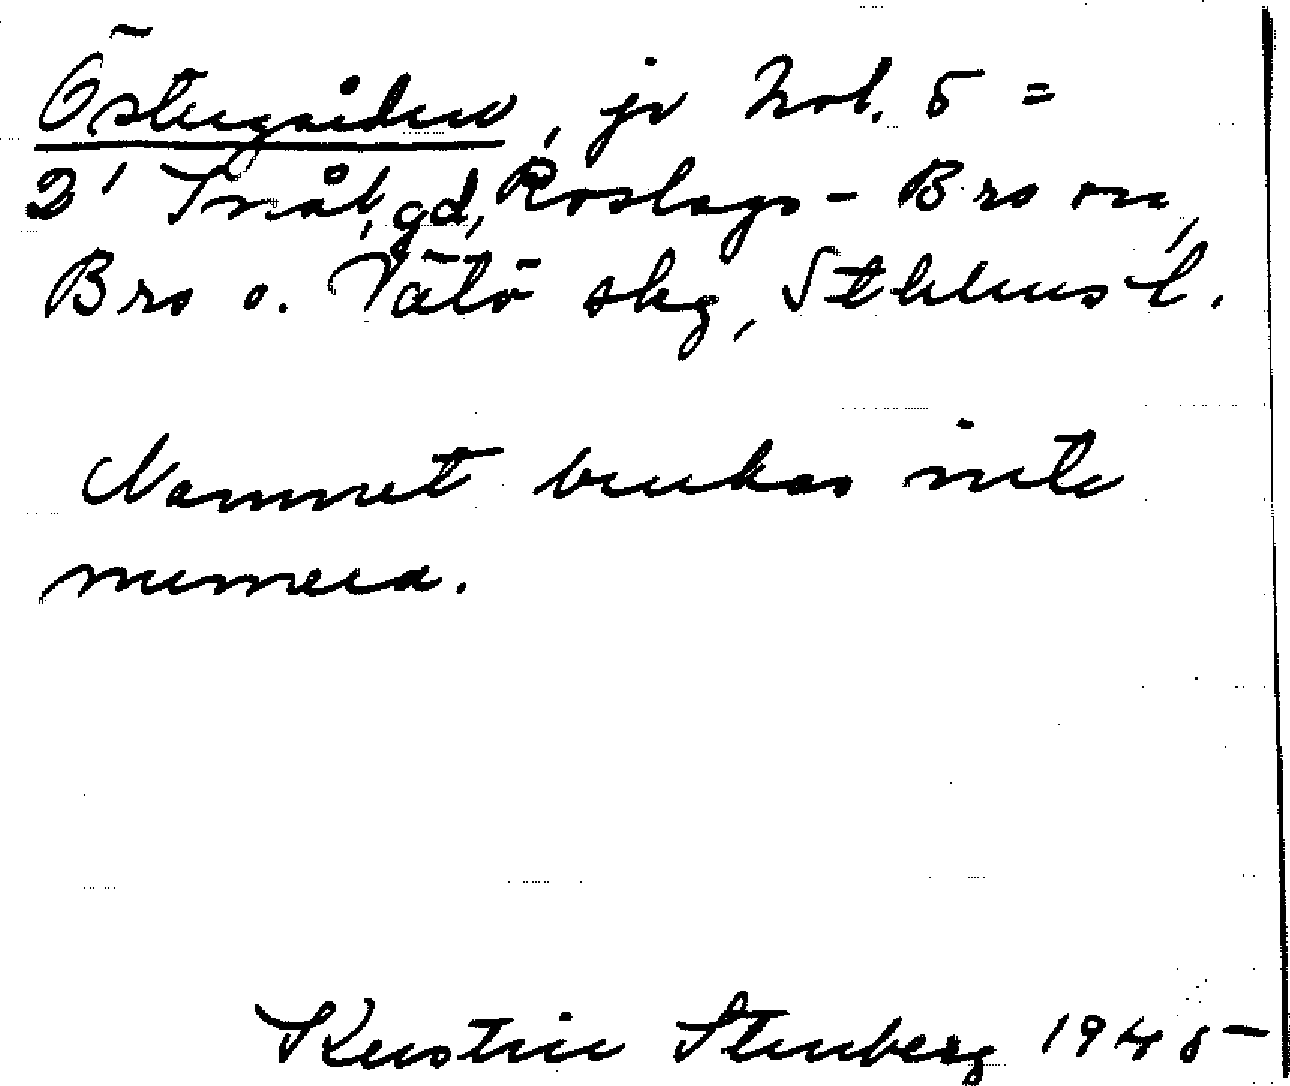 Östergården, jv Nol. 5 =
2' Smål, gd, Roslags-Bro sn,
Bro o. Vätö skg, Sthlms l.
Namnet brukas inte
numera.
Kerstin Stenberg 1945